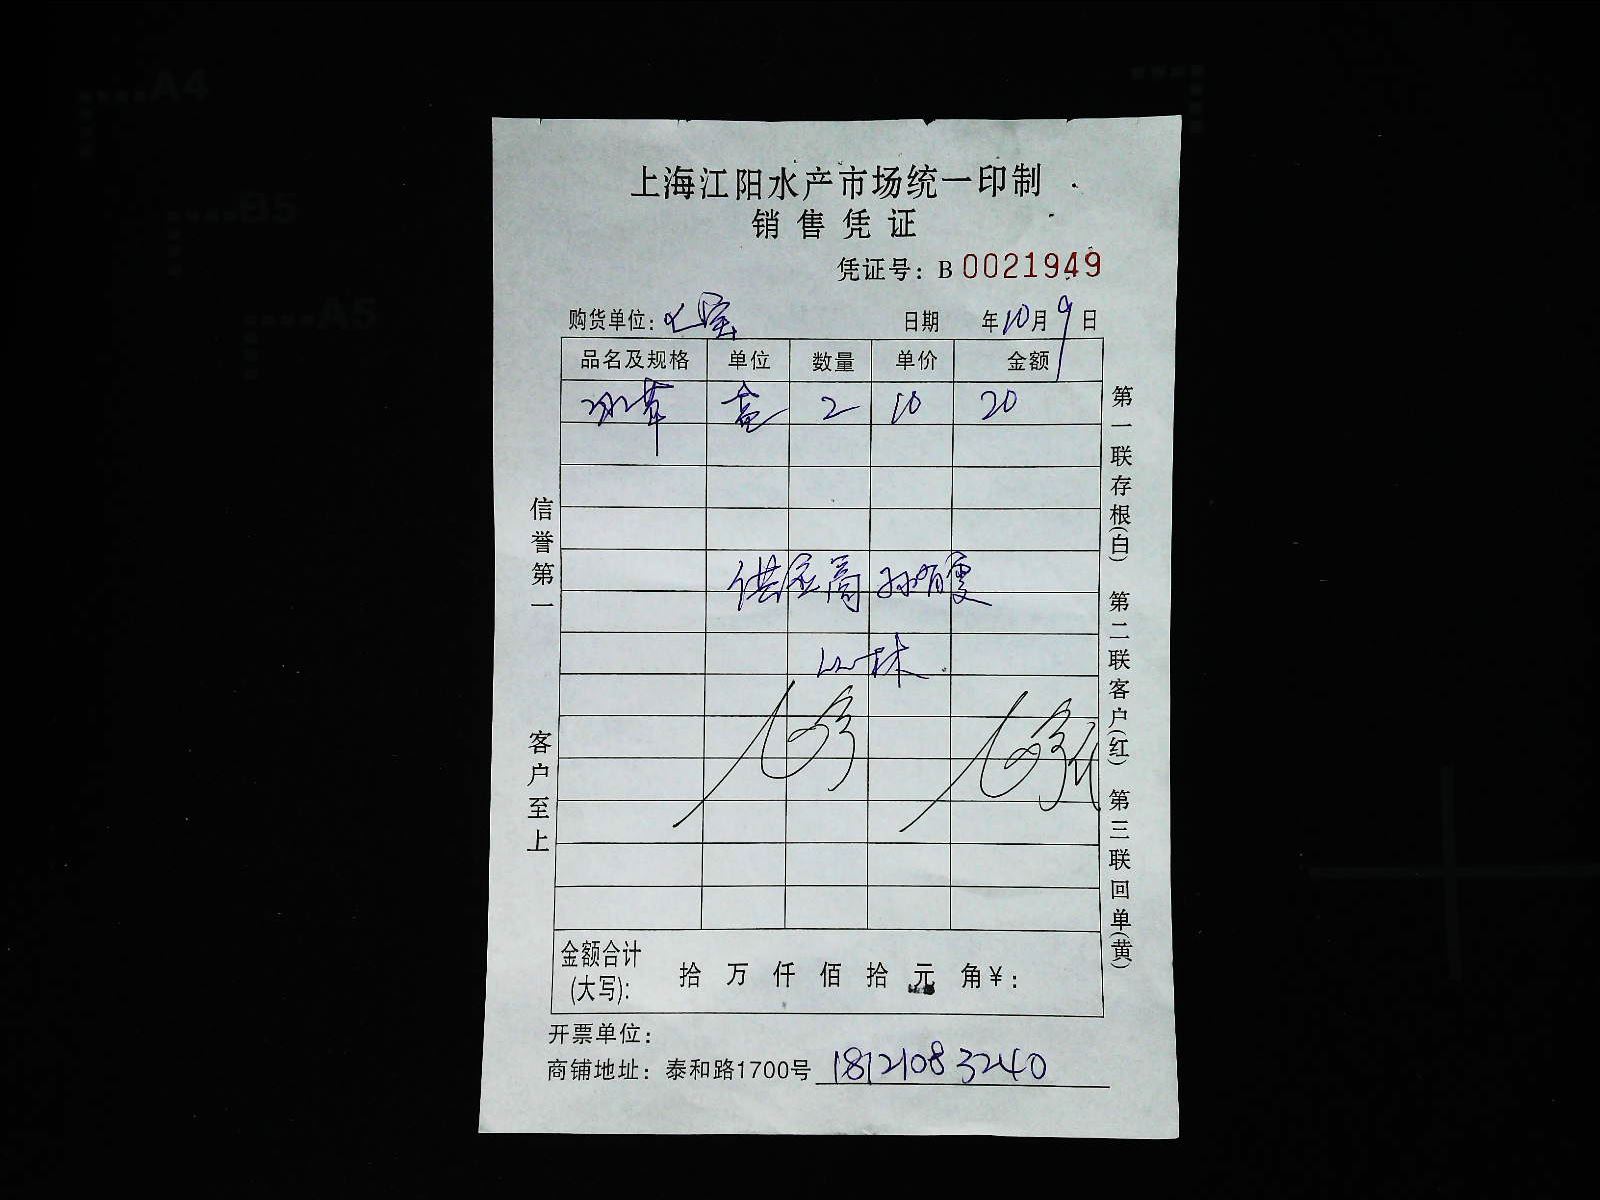 上海江阳水产市场统一印制
销售凭证
凭证号：B 0021949
购货单位：
日期 年10月9日
品名及规格 单位 数量 单价 金额
冰草 盒 2 10 20
供应商 孙有
信誉第一 客户至上
第一联存根(白) 第二联客户(红) 第三联回单(黄)
金额合计
(大写)： 拾 万 仟 佰 拾 元 角￥：
开票单位：
商铺地址：泰和路1700号 18121083240
A4
B5
A5